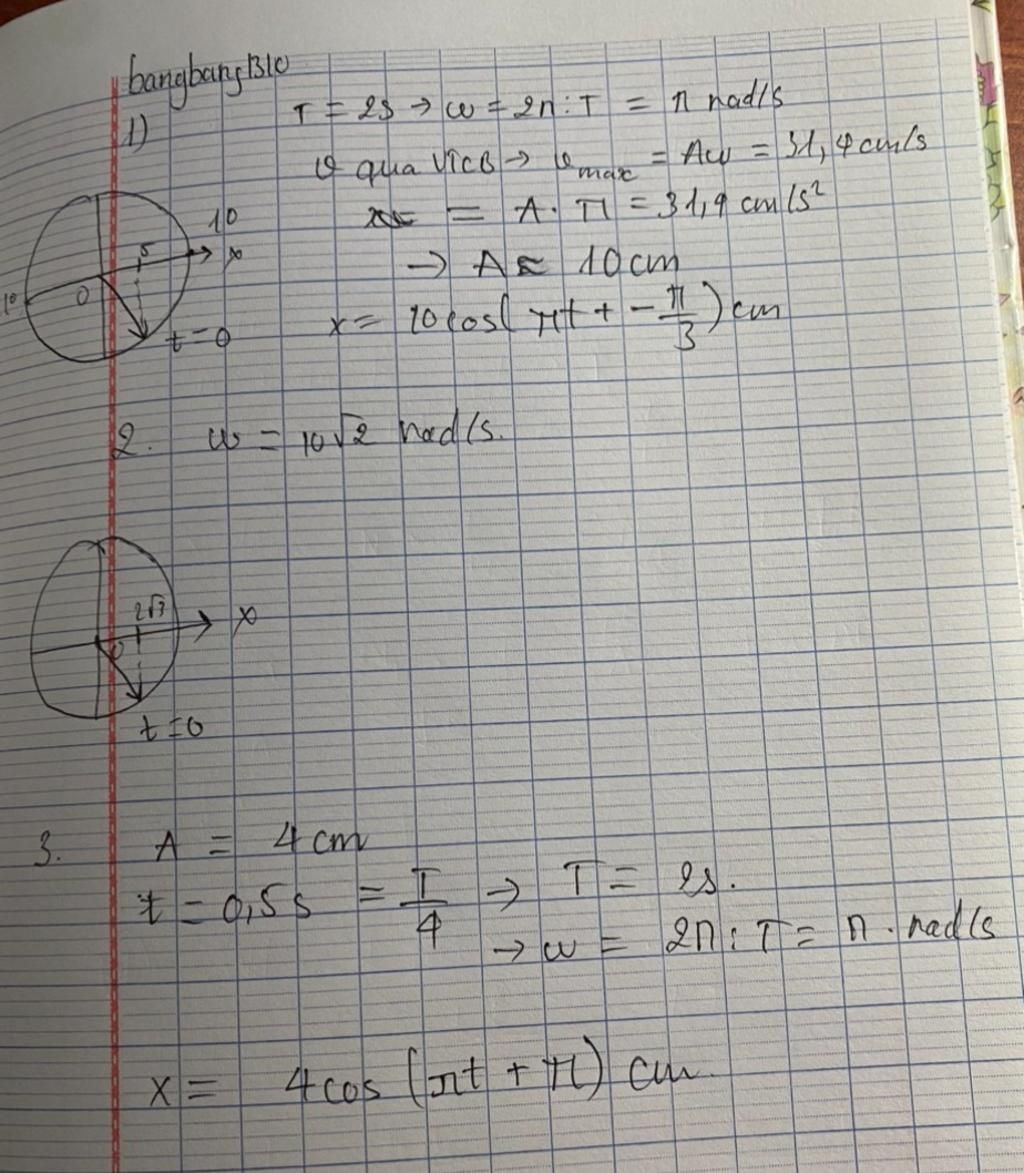 bangbang1310
1)
T = 2s → ω = 2π : T = π rad/s
v qua VTCB → v max = Aω = 31,4 cm/s
= A. π = 31,4 cm/s²
→ A ≈ 10cm
x = 10cos(πt + -π/3) cm
10
5
x
10
O
t=0
2. ω = 10√2 rad/s.
2√3
x
O
t=0
3. A = 4 cm
t = 0,5s = T/4 → T = 2s.
→ ω = 2π : T = π . rad/s
x = 4cos (πt + π) cm.